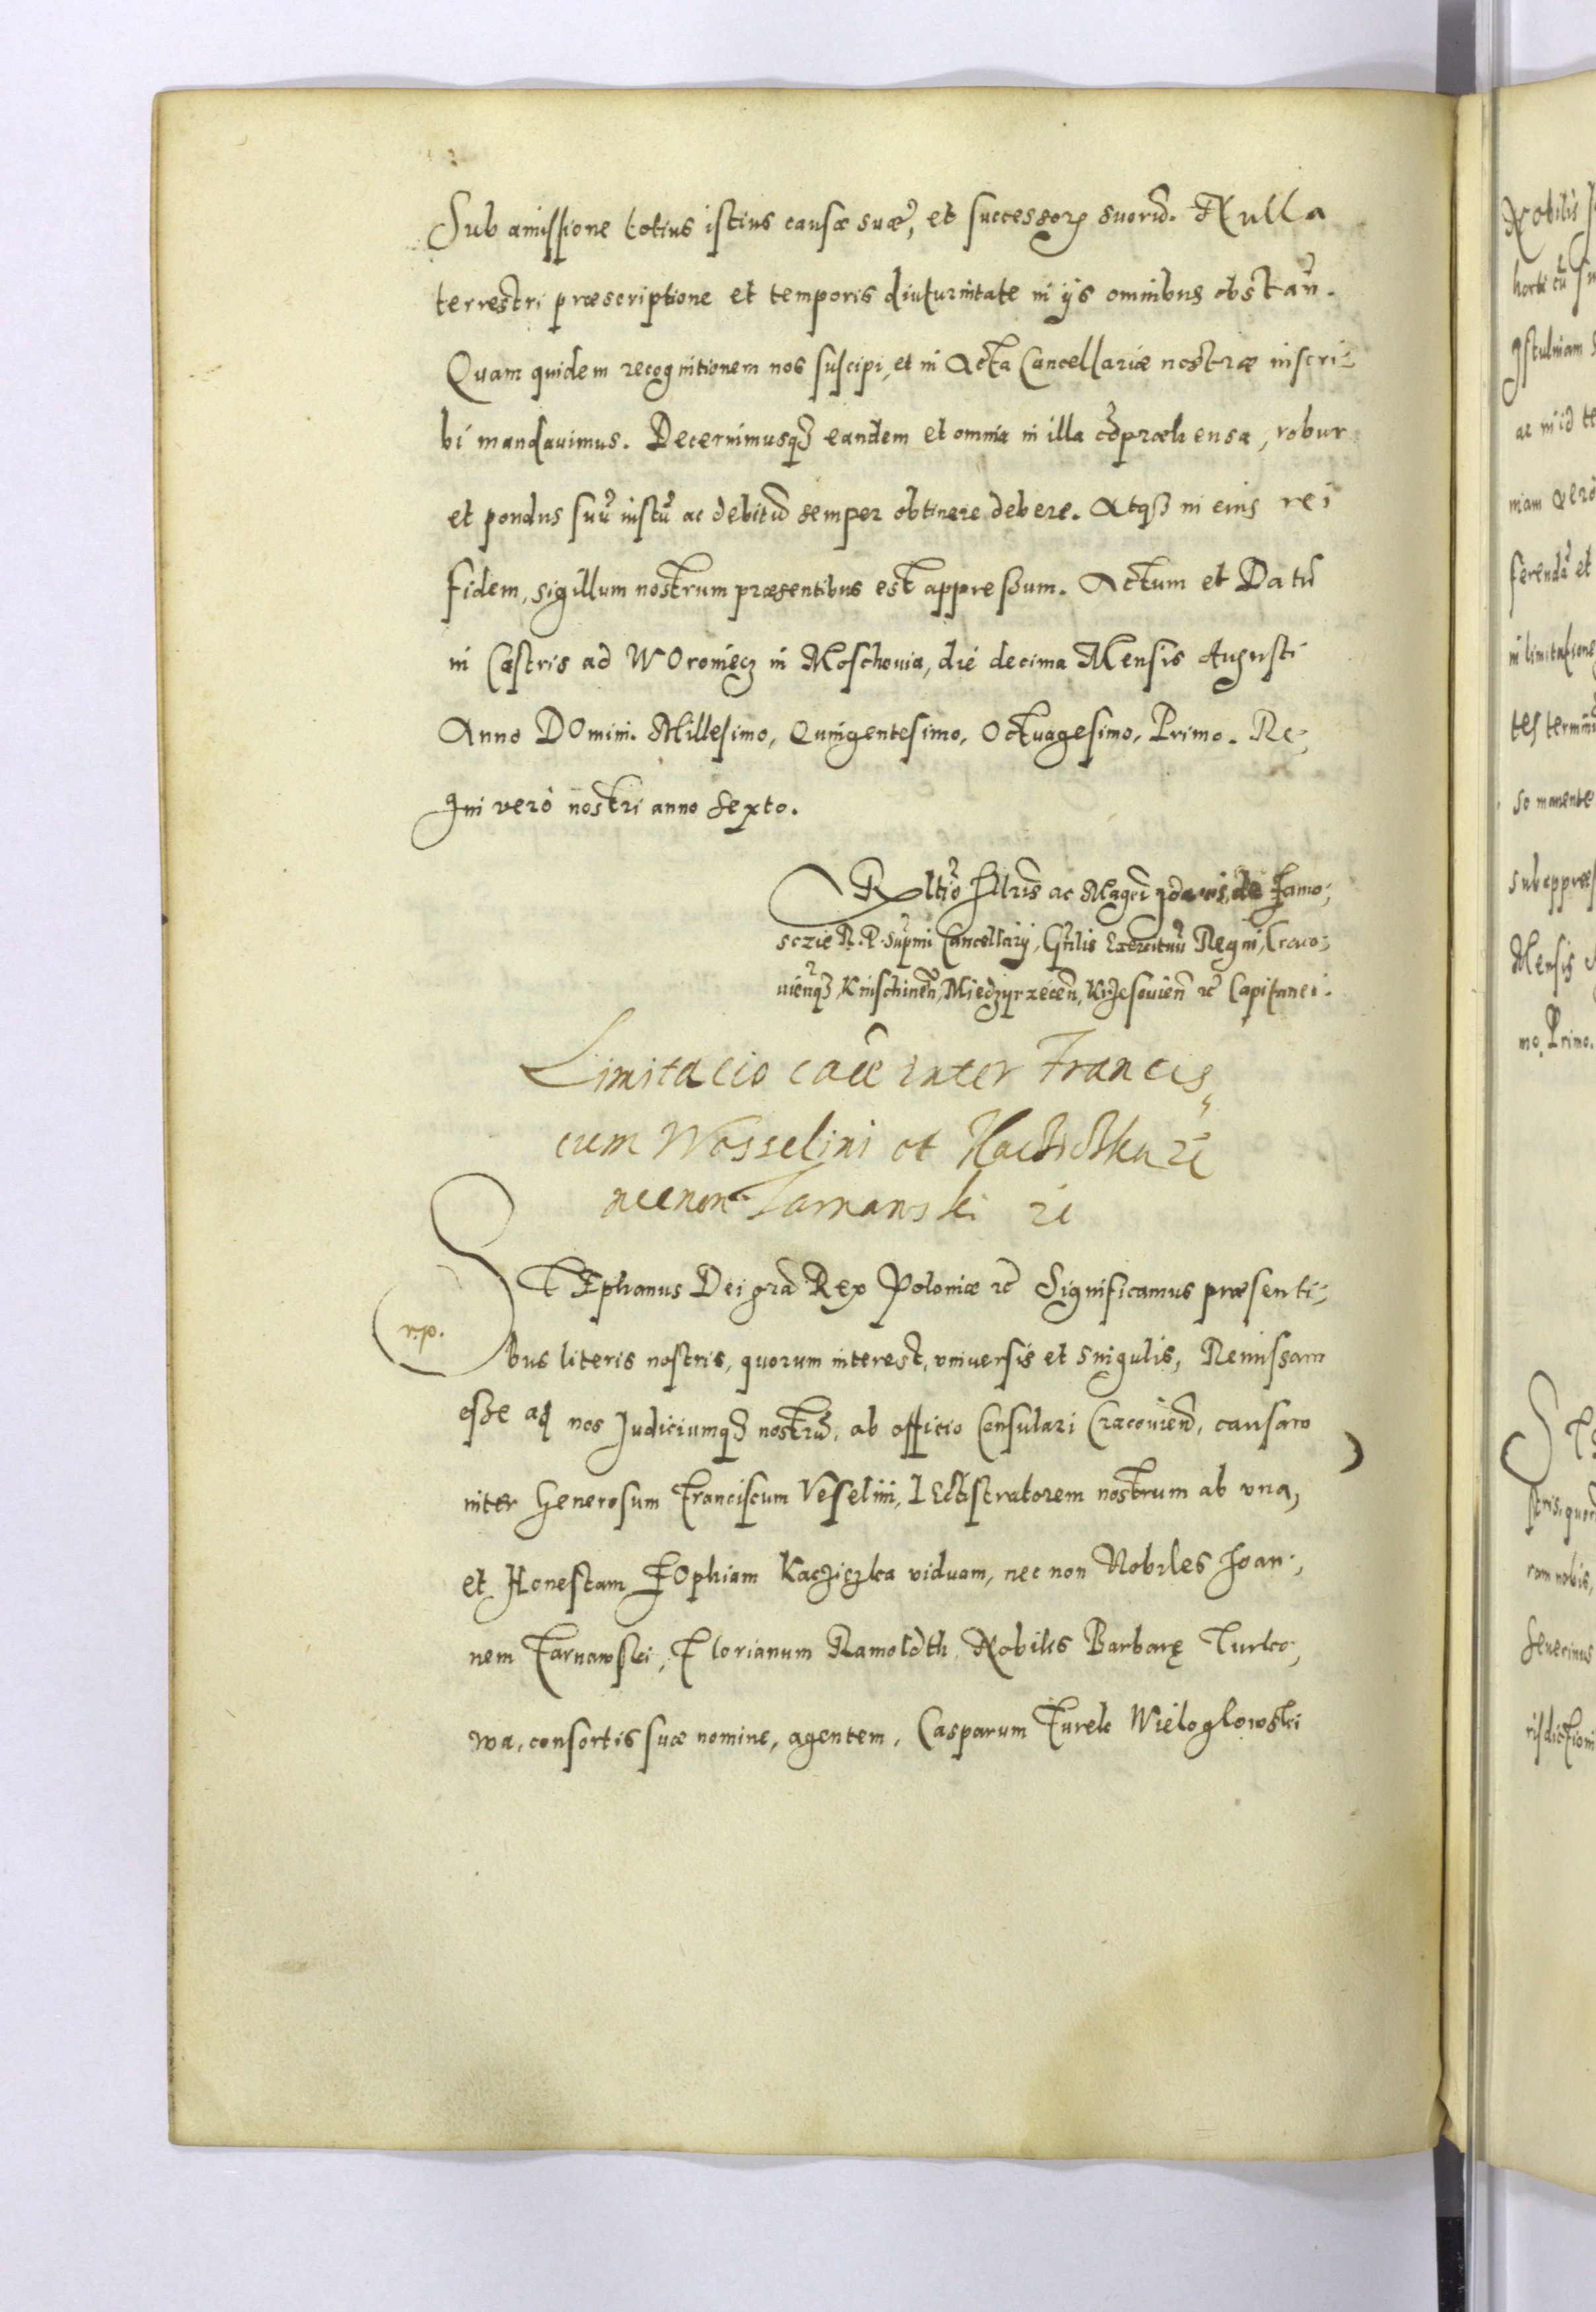 Sub amissione totius istius causæ suæ, et successorũ suorũ. Nulla
terrestri præscriptione et temporis diuturnitate in ijs omnibus obstañ.
Quam quidem recognitionem nos suscipi, et in Acta Cancellariæ nostræ inscri-
bi mandauimus. Decernimusq3 eandem et omnia in illa cõpræhensa, robur
et pondus suũ iustũ ac debitũ semper obtinere debere. Atq3 in eius rei
fidem, sigillum nostrum præsentibus est appressum. Actum et Datũ
in Castris ad WOroniecz in Moschouia, die decima Mensis Augusti
Anno DOmini. Millesimo, Quingentesimo, Octuagesimo, Primo. Re-
gni verò nostri anno Sexto.
Rltio Illris ac Magci Joannis de Zamo-
sczie R. P. Supmi Cancellarij, Gnlis Exercituũ Regni, Craco-
uieñq3, Knischineñ, Miedzyrzeceñ, Krzesouieñ etc Capitanei.
Limitacio caũe inter Francis-
cum Wosselini et Kacziczka etc
necnon Tarnawski etc
STEphanus Dei gra Rex Poloniæ etc Significamus præsenti-
r.p.
bus literis nostris, quorum interest, vniuersis et singulis, Remissam
esse ad nos Judiciumq3 nostrũ, ab officio Consulari Cracouieñ, causam
inter Generosum Franciscum Veselini, LEctistratorem nostrum ab vna,
et Honestam ZOphiam Kacziczka viduam, nec non Nobiles Joan-
nem Tarnawski, Florianum Ramoldth Nobilis Barbarę Turko-
wa, consortis suæ nomine, agentem, Casparum Turek Wieloglowski
Nobilis
horti cũ
ac in id
niam vero
ferendã et
in limitatione
tes termin
so manente
sub appres
Mensis
mo, Primo.
ST
stris, quor
ram nobis,
risdictioni